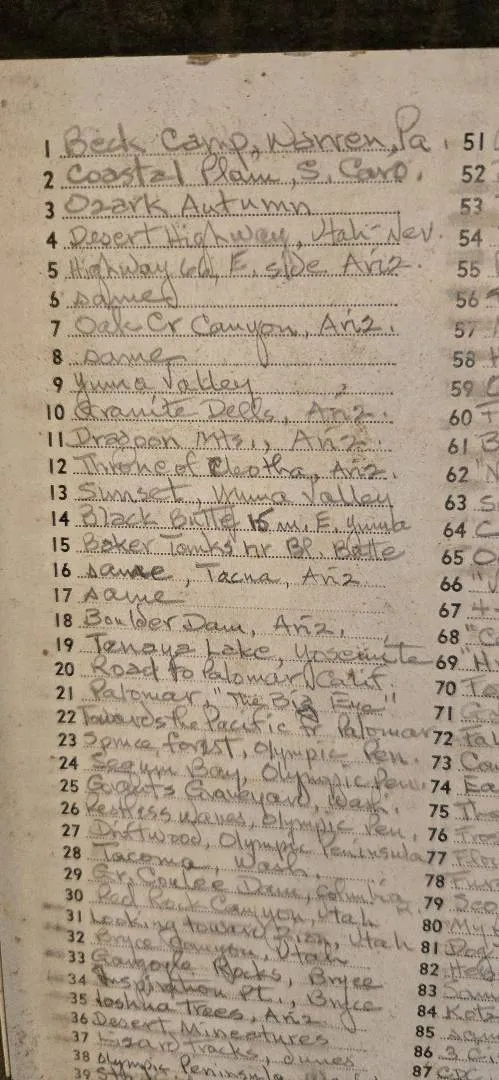 1 Beck Camp, Warren, Pa. 51
2 Coastal Plain, S. Caro. 52
3 Ozark Autumn 53
4 Desert Highway, Utah-Nev. 54
5 Highway 60, E. side Ariz. 55
6 same 56
7 Oak Cr Canyon, Ariz. 57
8 same 58
9 Yuma Valley 59
10 Granite Dells, Ariz. 60
11 Dragoon Mts., Ariz. 61
12 Throne of Cleotha, Ariz. 62
13 Sunset, Yuma Valley 63
14 Black Butte 15 m. E. Yuma 64
15 Baker Tanks nr Bl. Butte 65
16 same, Tacna, Ariz 66
17 same 67
18 Boulder Dam, Ariz. 68
19 Tenaya Lake, Yosemite 69
20 Road to Palomar, Calif. 70
21 Palomar, "The Big Eye" 71
22 Towards the Pacific fr Palomar 72
23 Spruce forest, Olympic Pen. 73
24 Sequm Bay, Olympic Pen. 74
25 Giants Graveyard, Wash. 75
26 Restless waves, Olympic Pen. 76
27 Driftwood, Olympic Peninsula 77
28 Tacoma, Wash. 78
29 Gr. Coulee Dam, Columbia R. 79
30 Red Rock Canyon, Utah 80
31 Looking toward Zion, Utah 81
32 Bryce Canyon, Utah 82
33 Gargoyle Rocks, Bryce 83
34 Inspiration Pt., Bryce 84
35 Joshua Trees, Ariz. 85
36 Desert Mineatures 86
37 Lizard Tracks, dunes 87
38 Olympic Peninsula
39